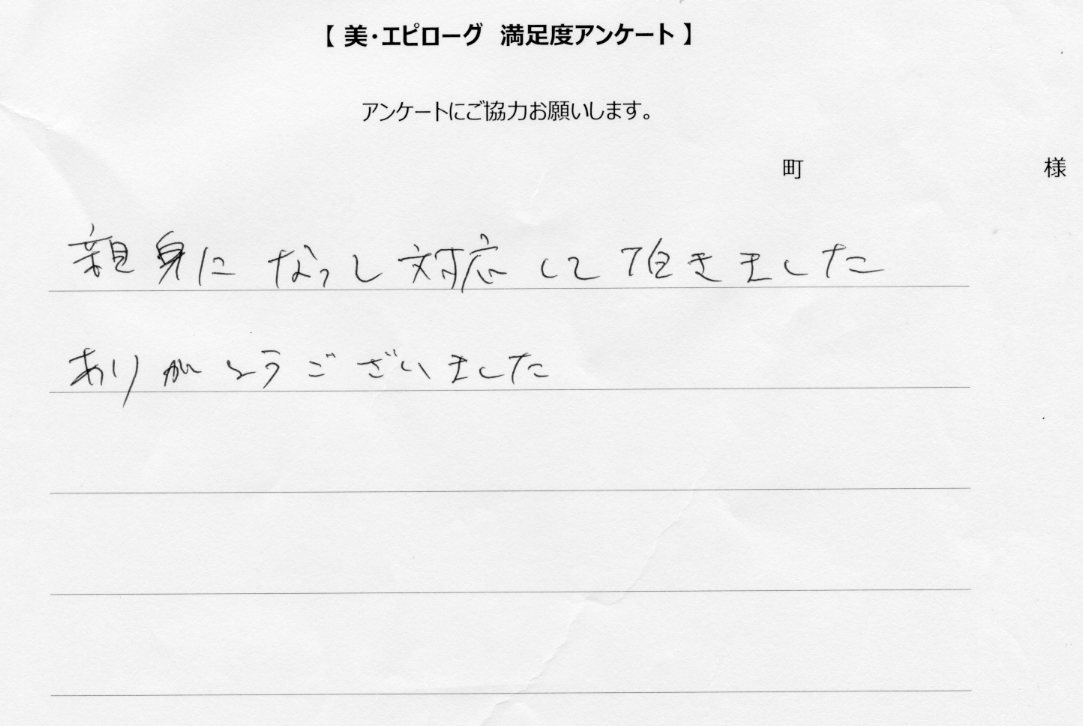 【 美・エピローグ 満足度アンケート 】
アンケートにご協力お願いします。
町 様
親身になっし対応して頂きました
ありがとうございました